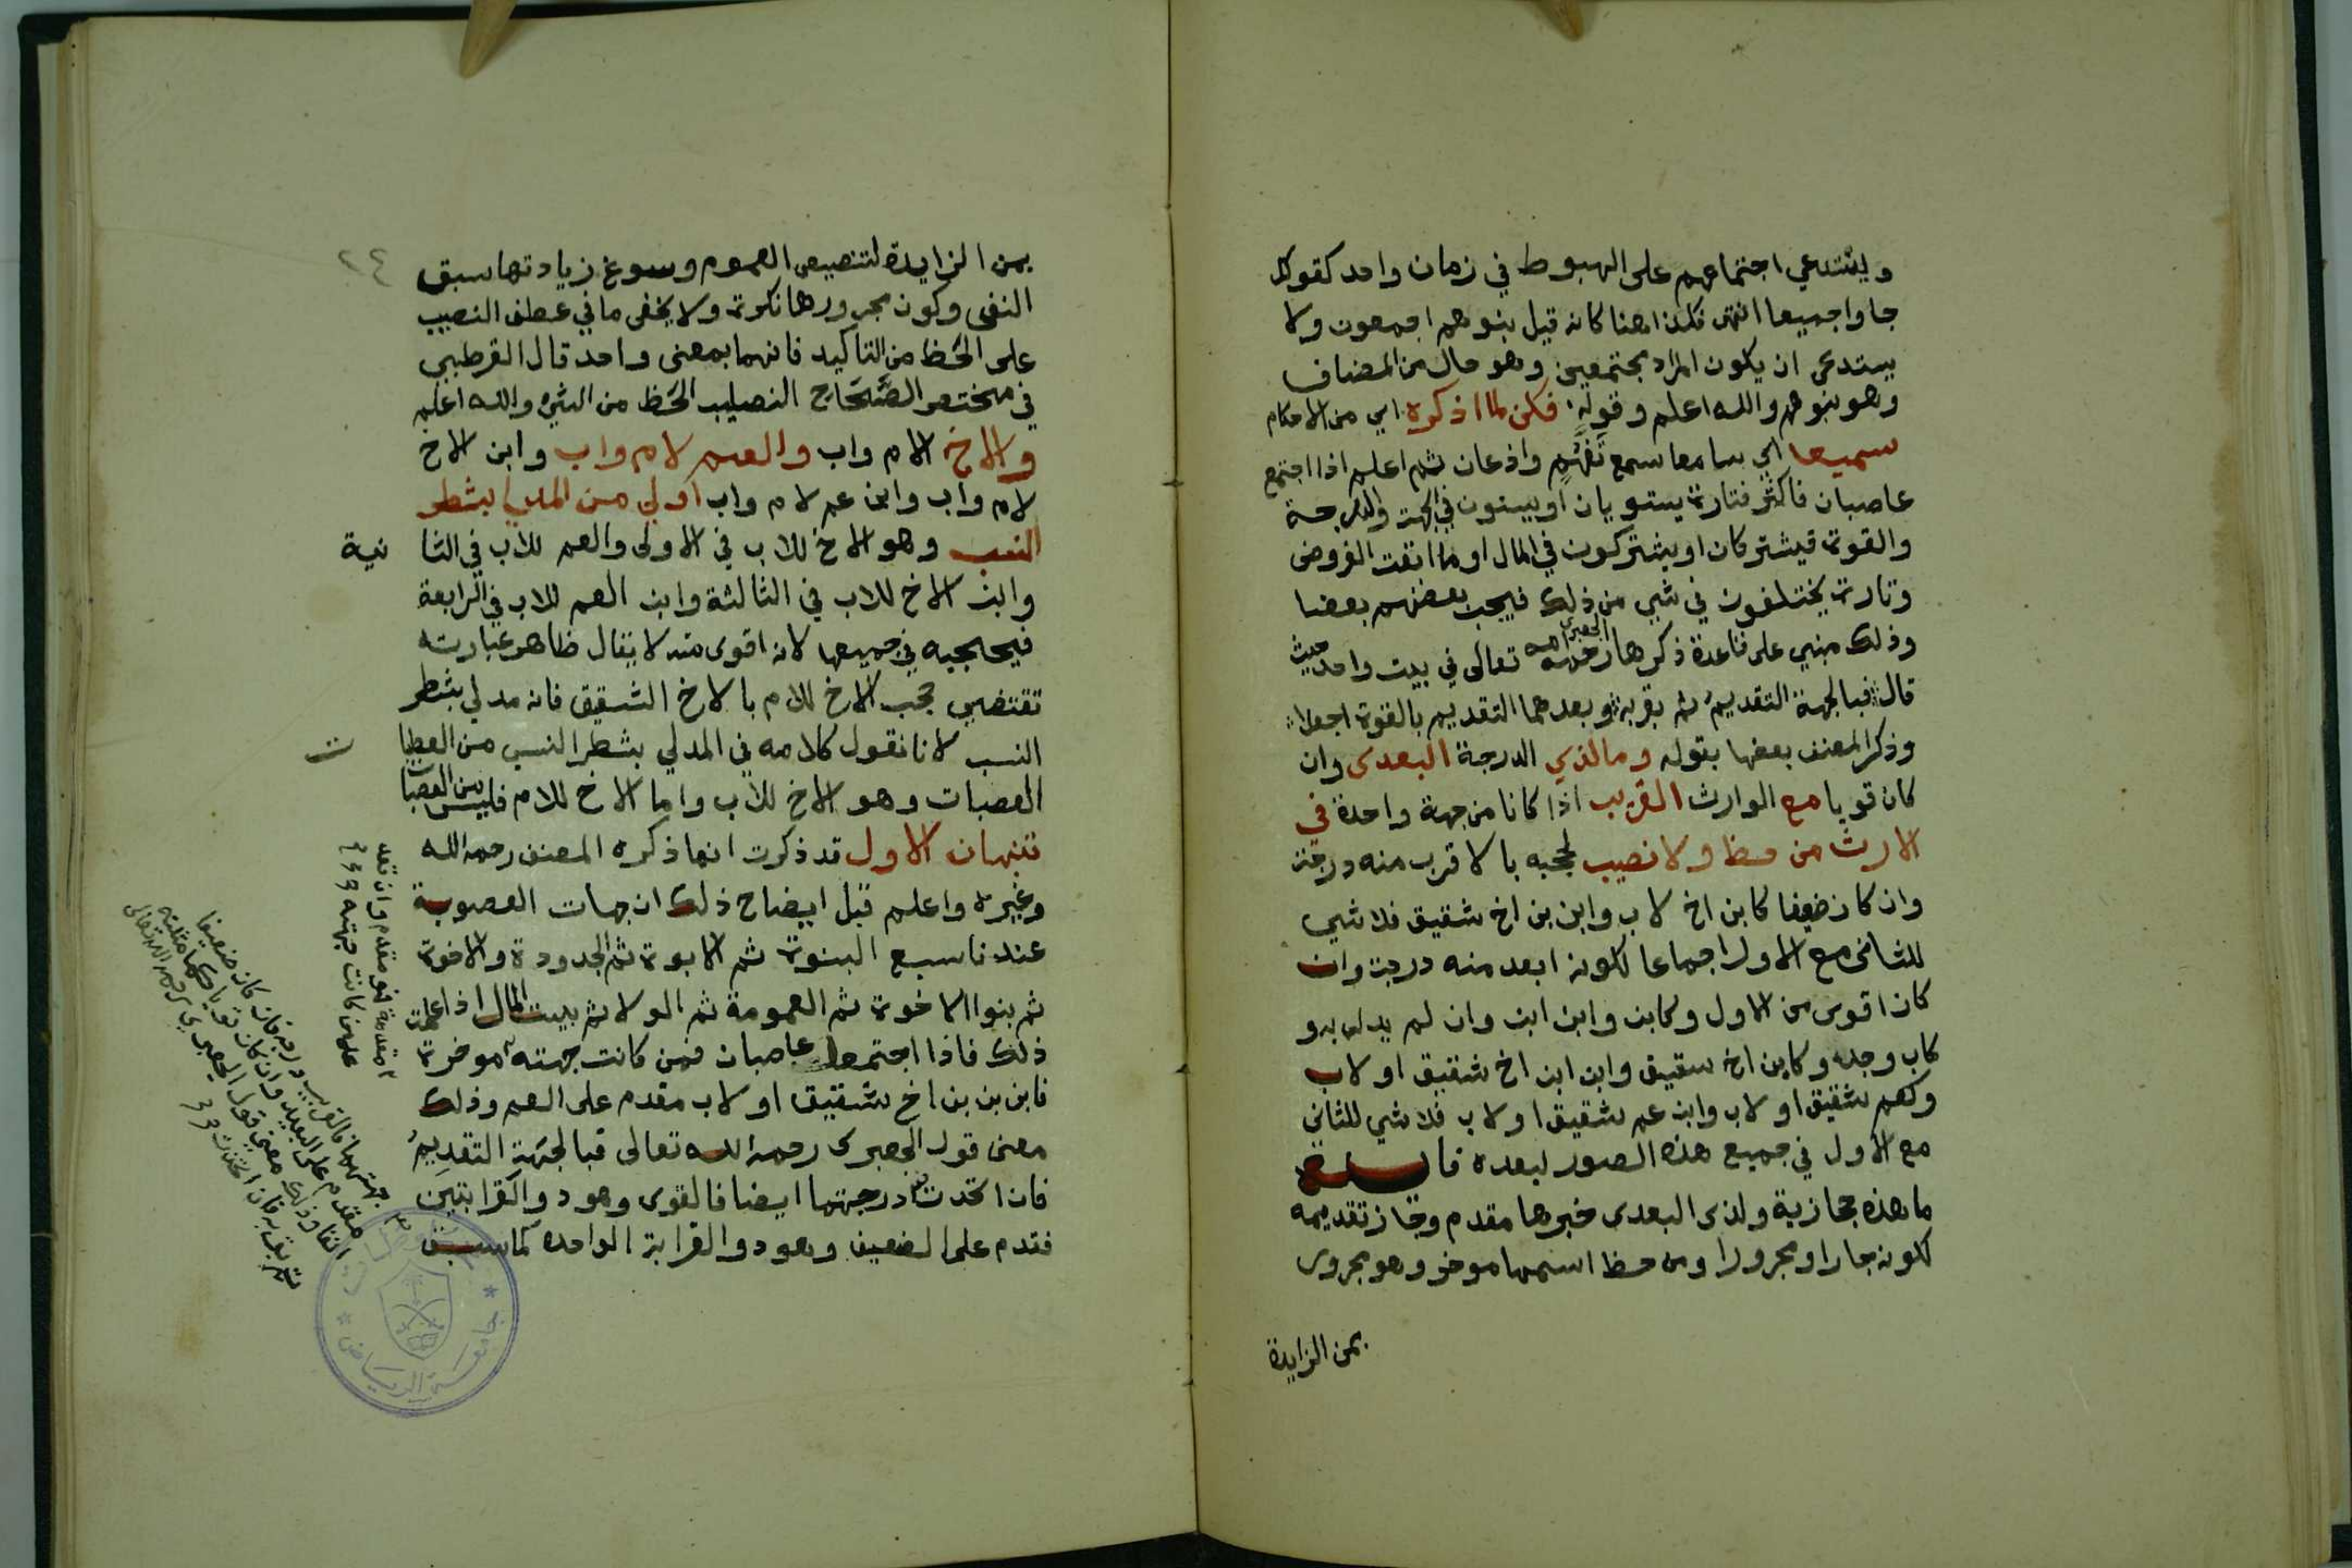 ويستدعي اجتماعهم على الهبوط في زمان واحد كقولك
جاوا جميعا انتهى فكذا هنا كانه قيل بنوهم اجمعون ولا
يستدعي ان يكون المراد مجتمعين وهو حال من المضاف
وهو بنوهم والله اعلم وقوله فكن لما اذكره اي من الاحكام
سميعا اي سامعا سمع تفهم واذعان ثم اعلم اذا اجتمع
عاصبان فاكثر فتارة يستويان او يستوون في الجهة والدرجة
والقوة فيشتركان او يشتركون في المال او ما ابقت الفروض
وتارة يختلفون في شي من ذلك فيحجب بعضهم بعضا
وذلك مبني على قاعدة ذكرها الجعبري رحمه الله تعالى في بيت واحد حيث
قال فبالجهة التقديم ثم بقربه وبعدهما التقديم بالقوة اجعلا
وذكر المصنف بعضها بقوله وما لذي الدرجة البعدى وان
كان قويا مع الوارث القريب اذا كانا من جهة واحدة في
الارث من حظ ولا نصيب لحجبه بالاقرب منه درجة
وان كان ضعيفا كابن اخ لاب وابن بن اخ شقيق فلا شي
للثاني مع الاول اجماعا لكونه ابعد منه درجة وان
كان اقوى من الاول وكابن وابن ابن وان لم يدل به و
كاب وجد وكابن اخ شقيق وابن ابن اخ شقيق او لاب
وكعم شقيق او لاب وابن عم شقيق او لاب فلا شي للثاني
مع الاول في جميع هذه الصور لبعده
ما هذه حجازية ولذي البعدى خبرها مقدم وجاز تقديمه
لكونه جارا ومجرورا ومن حظ اسمها موخر وهو مجرور
بمن الزايدة
٢٤
بمن الزايدة لتنصيص العموم وسوغ زيادتها سبق
النفي وكون مجرورها نكرة ولا يخفى ما في عطف النصيب
على الحظ من التاكيد فانهما بمعنى واحد قال القرطبي
في مختصر الصحاح النصيب الحظ من الشي والله اعلم
والاخ لام واب والعم لام واب وابن الاخ
لام واب وابن عم لام واب اولى من المدلي بشطر
النسب وهو الاخ للاب في الاولى والعم للاب في الثانية
وابن الاخ للاب في الثالثة وابن العم للاب في الرابعة
فيحجبه في جميعها لانه اقوى منه لا يقال ظاهر عبارته
تقتضي حجب الاخ للام بالاخ الشقيق فانه مدلي بشطر
النسب لانا نقول كلامه في المدلي بشطر النسب من العصبات
العصبات وهو الاخ للاب واما الاخ للام فليس من العصبات
تنبهان الاول قد ذكرت انما ذكره المصنف رحمه الله
وغيره واعلم قبل ايضاح ذلك ان جهات العصوبة
عندنا سبع البنوة ثم الابوة ثم الجدودة والاخوة
ثم بنوا الاخوة ثم العمومة ثم الولا ثم بيت المال اذا علمت
ذلك فاذا اجتمع عاصبان فمن كانت جهته موخرة
فابن بن بن اخ شقيق او لاب مقدم على العم وذلك
معنى قول الجعبري رحمه الله تعالى فبالجهة التقديم
فان اتحدت درجتهما ايضا فالقوي وهو ذو القرابتين
فقدم على الضعيف وهو ذو القرابة الواحدة كما سبق
مقدمة فهو مقدم وان بعد
على من كانت جهته
جهتهما فالقريب درجة وان كان ضعيفا
مقدم على البعيد وان كان قويا كما مثلته
انفا وذلك معنى قول الجعبري رحمه الله تعالى
ثم بقربه فان اتحدت
جامعة الرياض